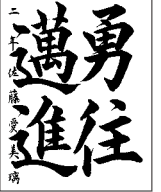 勇往
邁進
二年佐藤愛美璃